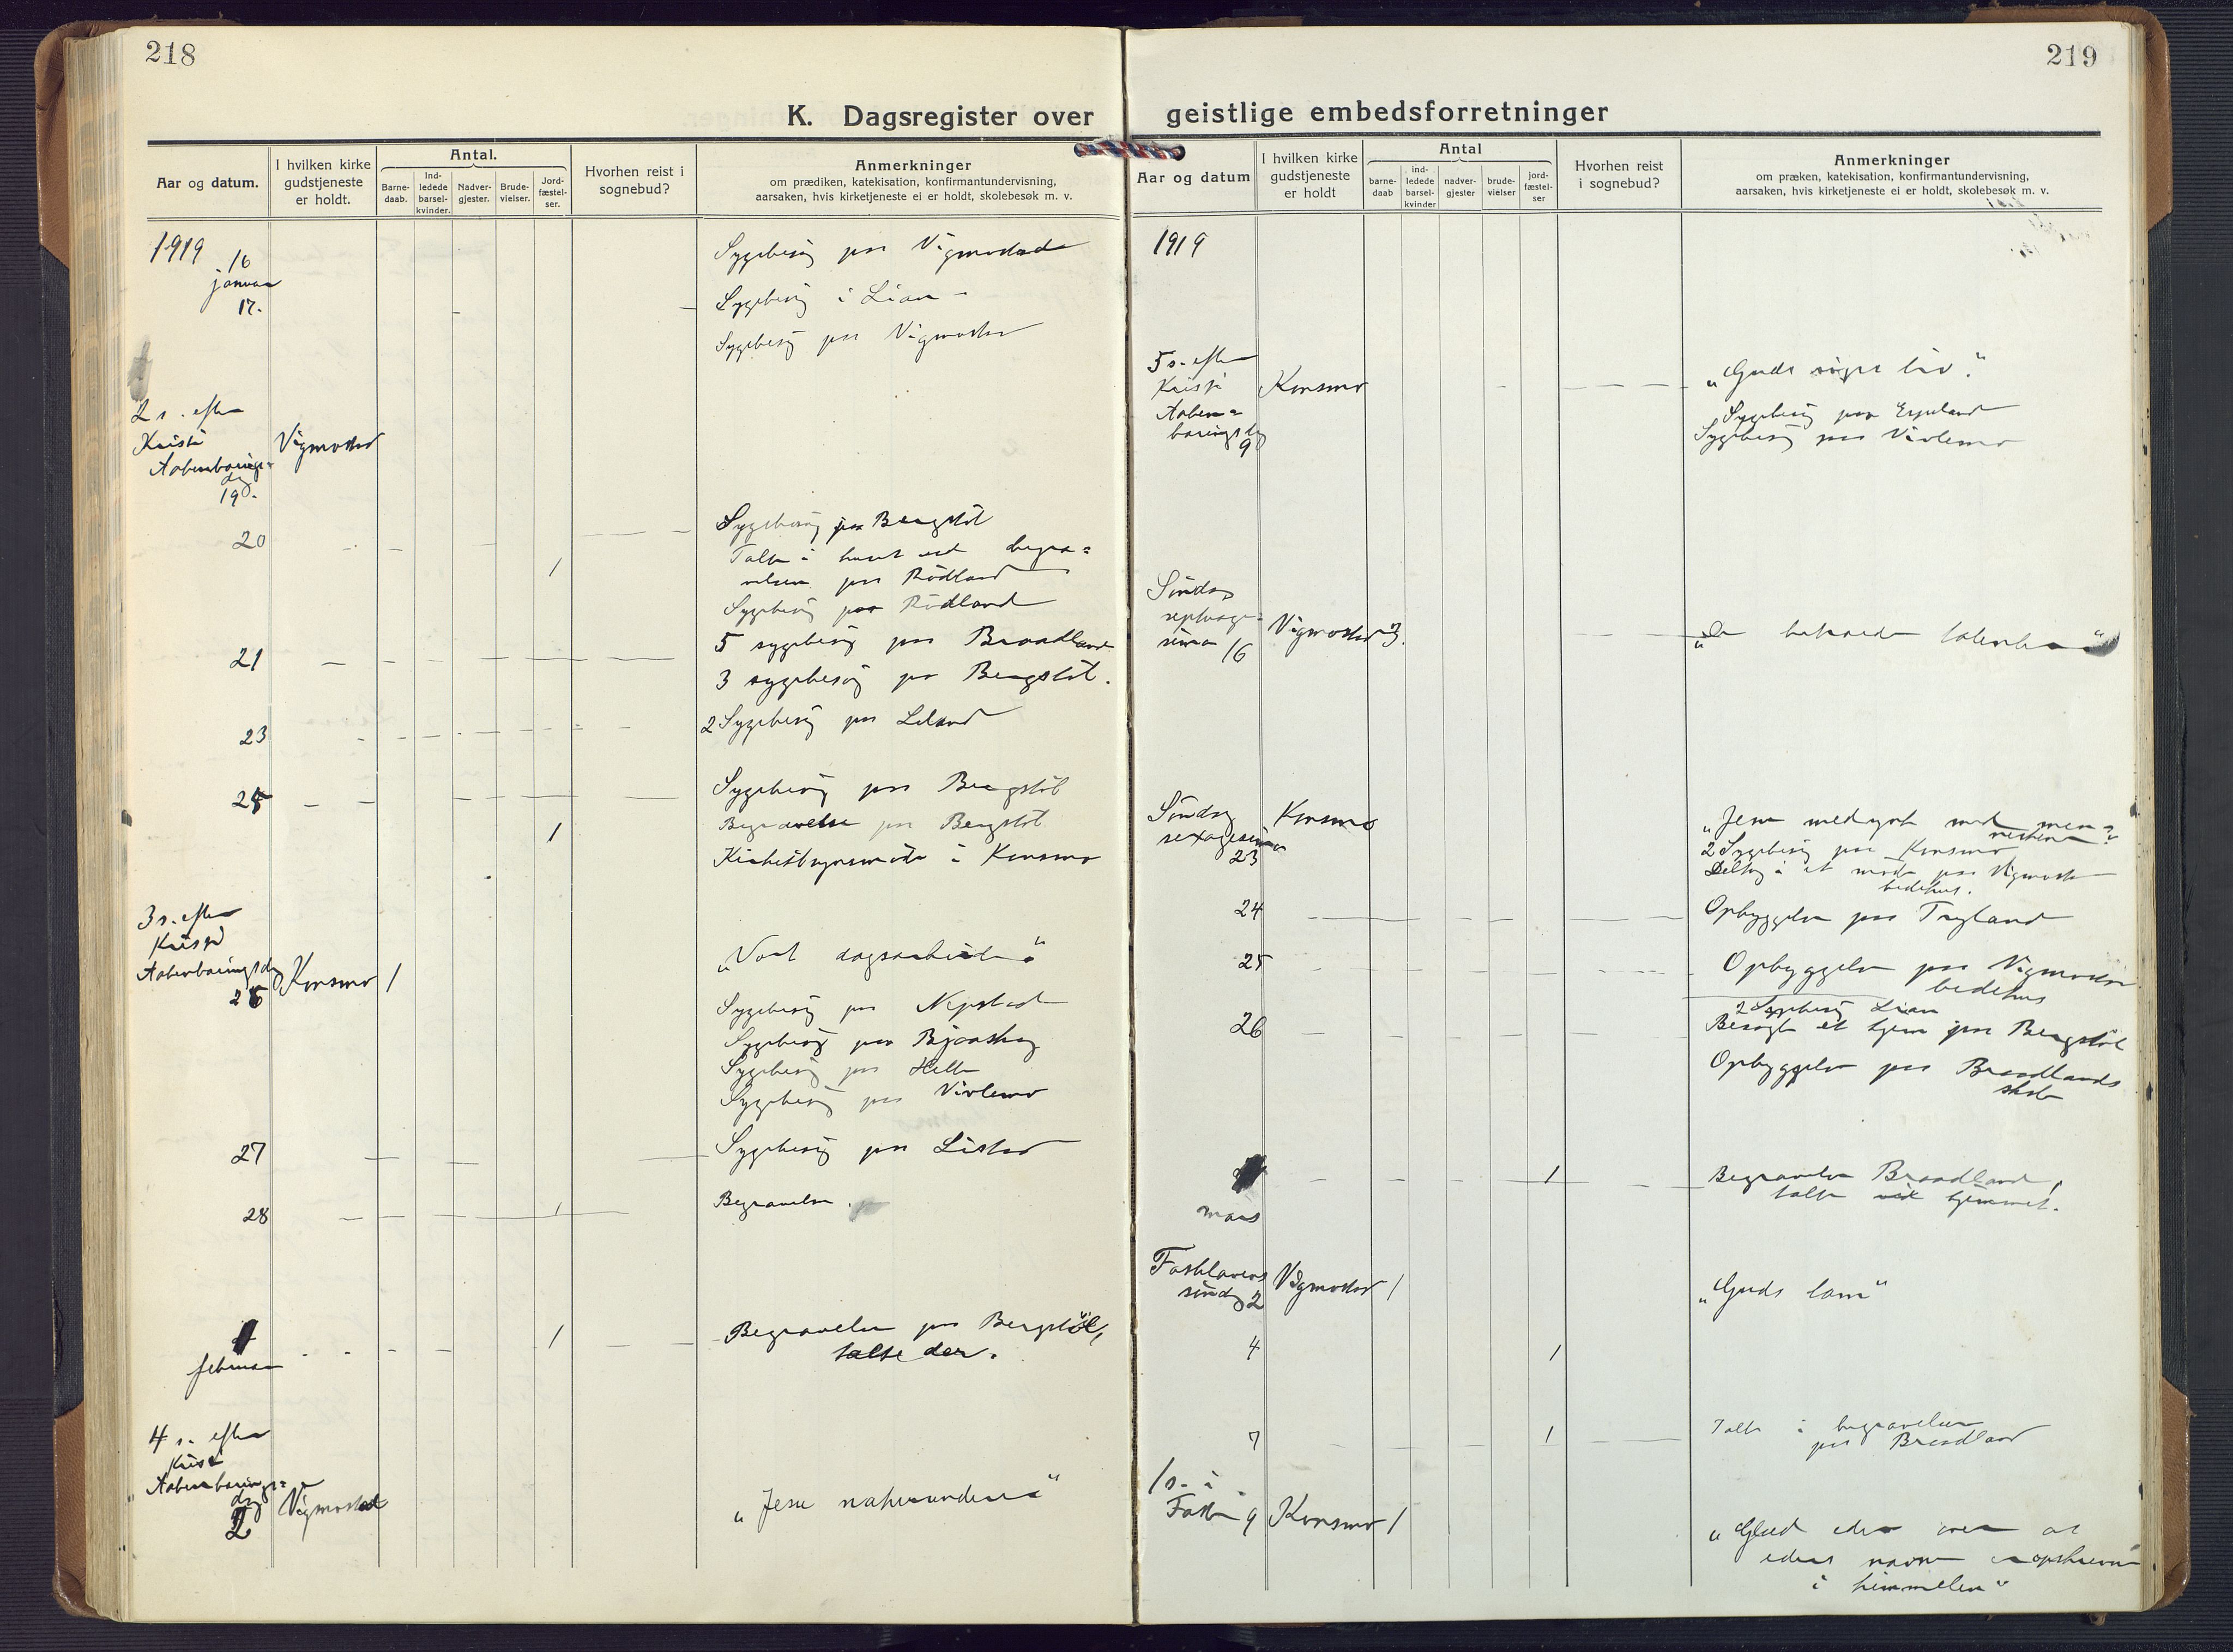 218
K. Dagsregister over
Aar og datum.
I hvilken kirke
gudstjeneste
er holdt.
Antal.
Barne-
daab.
Ind-
ledede
barsel-
kvinder.
Nadver-
gjester.
Brude-
vielser.
Jord-
fæstel-
ser.
Hvorhen reist i
sognebud?
Anmerkninger
om prædiken, katekisation, konfirmantundervisning,
aarsaken, hvis kirketjeneste ei er holdt, skolebesøk m. v.
1919
16
januar
Sygebesög paa Vigmostad
17.
Sygebesög i Lian
Sygebesög paa Vigmostad
2 s. efter
Kristi
Aabenbarings-
dag
19.
Vigmostad
20
Sygebesög paa Bergstöl
1
Talte i huset ved begra=
velsen paa Rödland
Sygebesög paa Rödland
21
5 sygebesög paa Braadland
3 sygebesög paa Bergstöl.
23
2 Sygebesög paa Leland
Sygebesög paa Bergstöl
1
Begravelse paa Bergstöl
Kirkestyremöte i Konsmo
3 s. efter
Kristi
Aabenbaringsdag
26
Konsmo
1
„Vort dagsarbeide"
Sygebesög paa Nepstad
Sygebesög paa Bjaaskog
Sygebesög paa Helle
Sygebesög paa Vivlemo
27
Sygebesög paa Listad
28
1
Begravelse.
1
februar
1
Begravelse paa Bergstöl,
talte der.
4 s. efter
Kristi
Aabenbarings=
dag
2
Vigmostad
„Jesu naturundere"
219
geistlige embedsforretninger
Aar og datum
I hvilken kirke
gudstjeneste
er holdt
Antal
barne-
daab
ind-
ledede
barsel-
kvinder
nadver-
gjester
brude-
vielser
jord-
fæstel-
ser
Hvorhen reist
i sognebud?
Anmerkninger
om præken, katekisation, konfirmantundervisning,
aarsaken, hvis kirketjeneste ei er holdt, skolebesøk m. v.
1919
5 s. efter
Kristi
Aaben=
baringsdag
9
Konsmo
„Guds riges lov."
Sygebesög paa
Sygebesög paa Vivlemo
Söndag
septuage=
sima 16
Vigmostad
3.
„De betroede talenter"
Söndag
sexagesima
23
Konsmo
„Jesu medynk med men=
nesken"
2 Sygebesög paa Konsmo
Deltog i et möte paa Vigmostad
bedehus.
24
Opbyggelse paa Trygland
25
Opbyggelse paa Vigmostad
bedehus
26
2 Sygebesög Lian
Besøgte et hjem paa Bergstöl
Opbyggelse paa Braadlands
skole
mars
1
Begravelse Braadland,
talte ved hjemmet.
Fastelavens
söndag 2
Vigmostad
1
„Guds lam"
4
1
7
1
Talte i begravelsen
paa Braadland
1 s. i
Faste 9
Konsmo
1
„Glæd eder over at
eders navne er opskrevne
i himmelen"